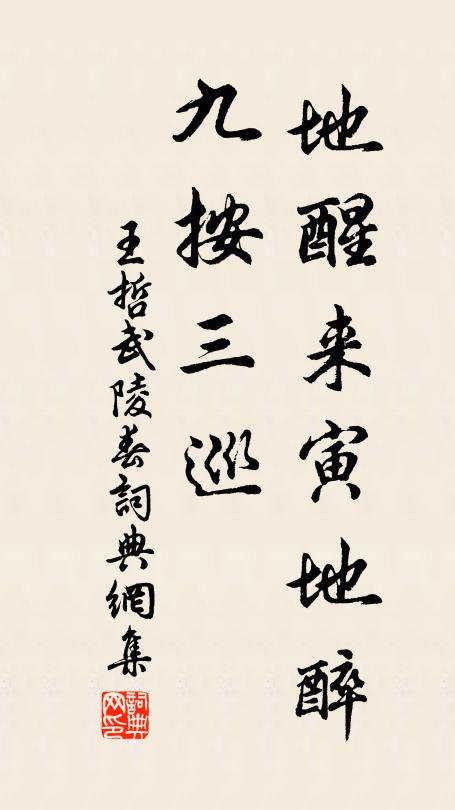 地醒来寅地醉
九按三巡
王哲武陵春詞典網集
詞典网印